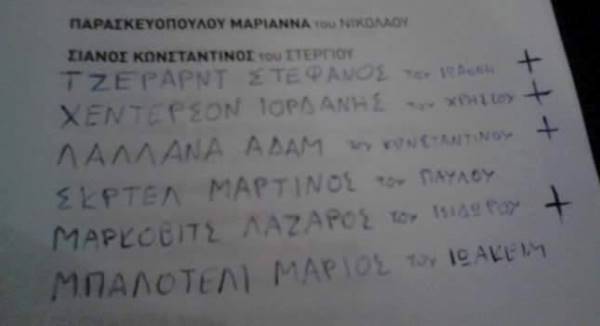 ΠΑΡΑΣΚΕΥΟΠΟΥΛΟΥ ΜΑΡΙΑΝΝΑ του ΝΙΚΟΛΑΟΥ
ΣΙΑΝΟΣ ΚΩΝΣΤΑΝΤΙΝΟΣ του ΣΤΕΡΓΙΟΥ
ΤΖΕΡΑΡΝΤ ΣΤΕΦΑΝΟΣ του +
ΧΕΝΤΕΡΣΟΝ ΙΟΡΔΑΝΗΣ του ΧΡΗΣΤΟΥ +
ΛΑΛΛΑΝΑ ΑΔΑΜ του ΚΩΝΣΤΑΝΤΙΝΟΥ +
ΣΚΡΤΕΛ ΜΑΡΤΙΝΟΣ του ΠΑΥΛΟΥ
ΜΑΡΚΟΒΙΤΣ ΛΑΖΑΡΟΣ του ΙΣΙΔΩΡΟΥ +
ΜΠΑΛΟΤΕΛΙ ΜΑΡΙΟΣ του ΙΩΑΚΕΙΜ